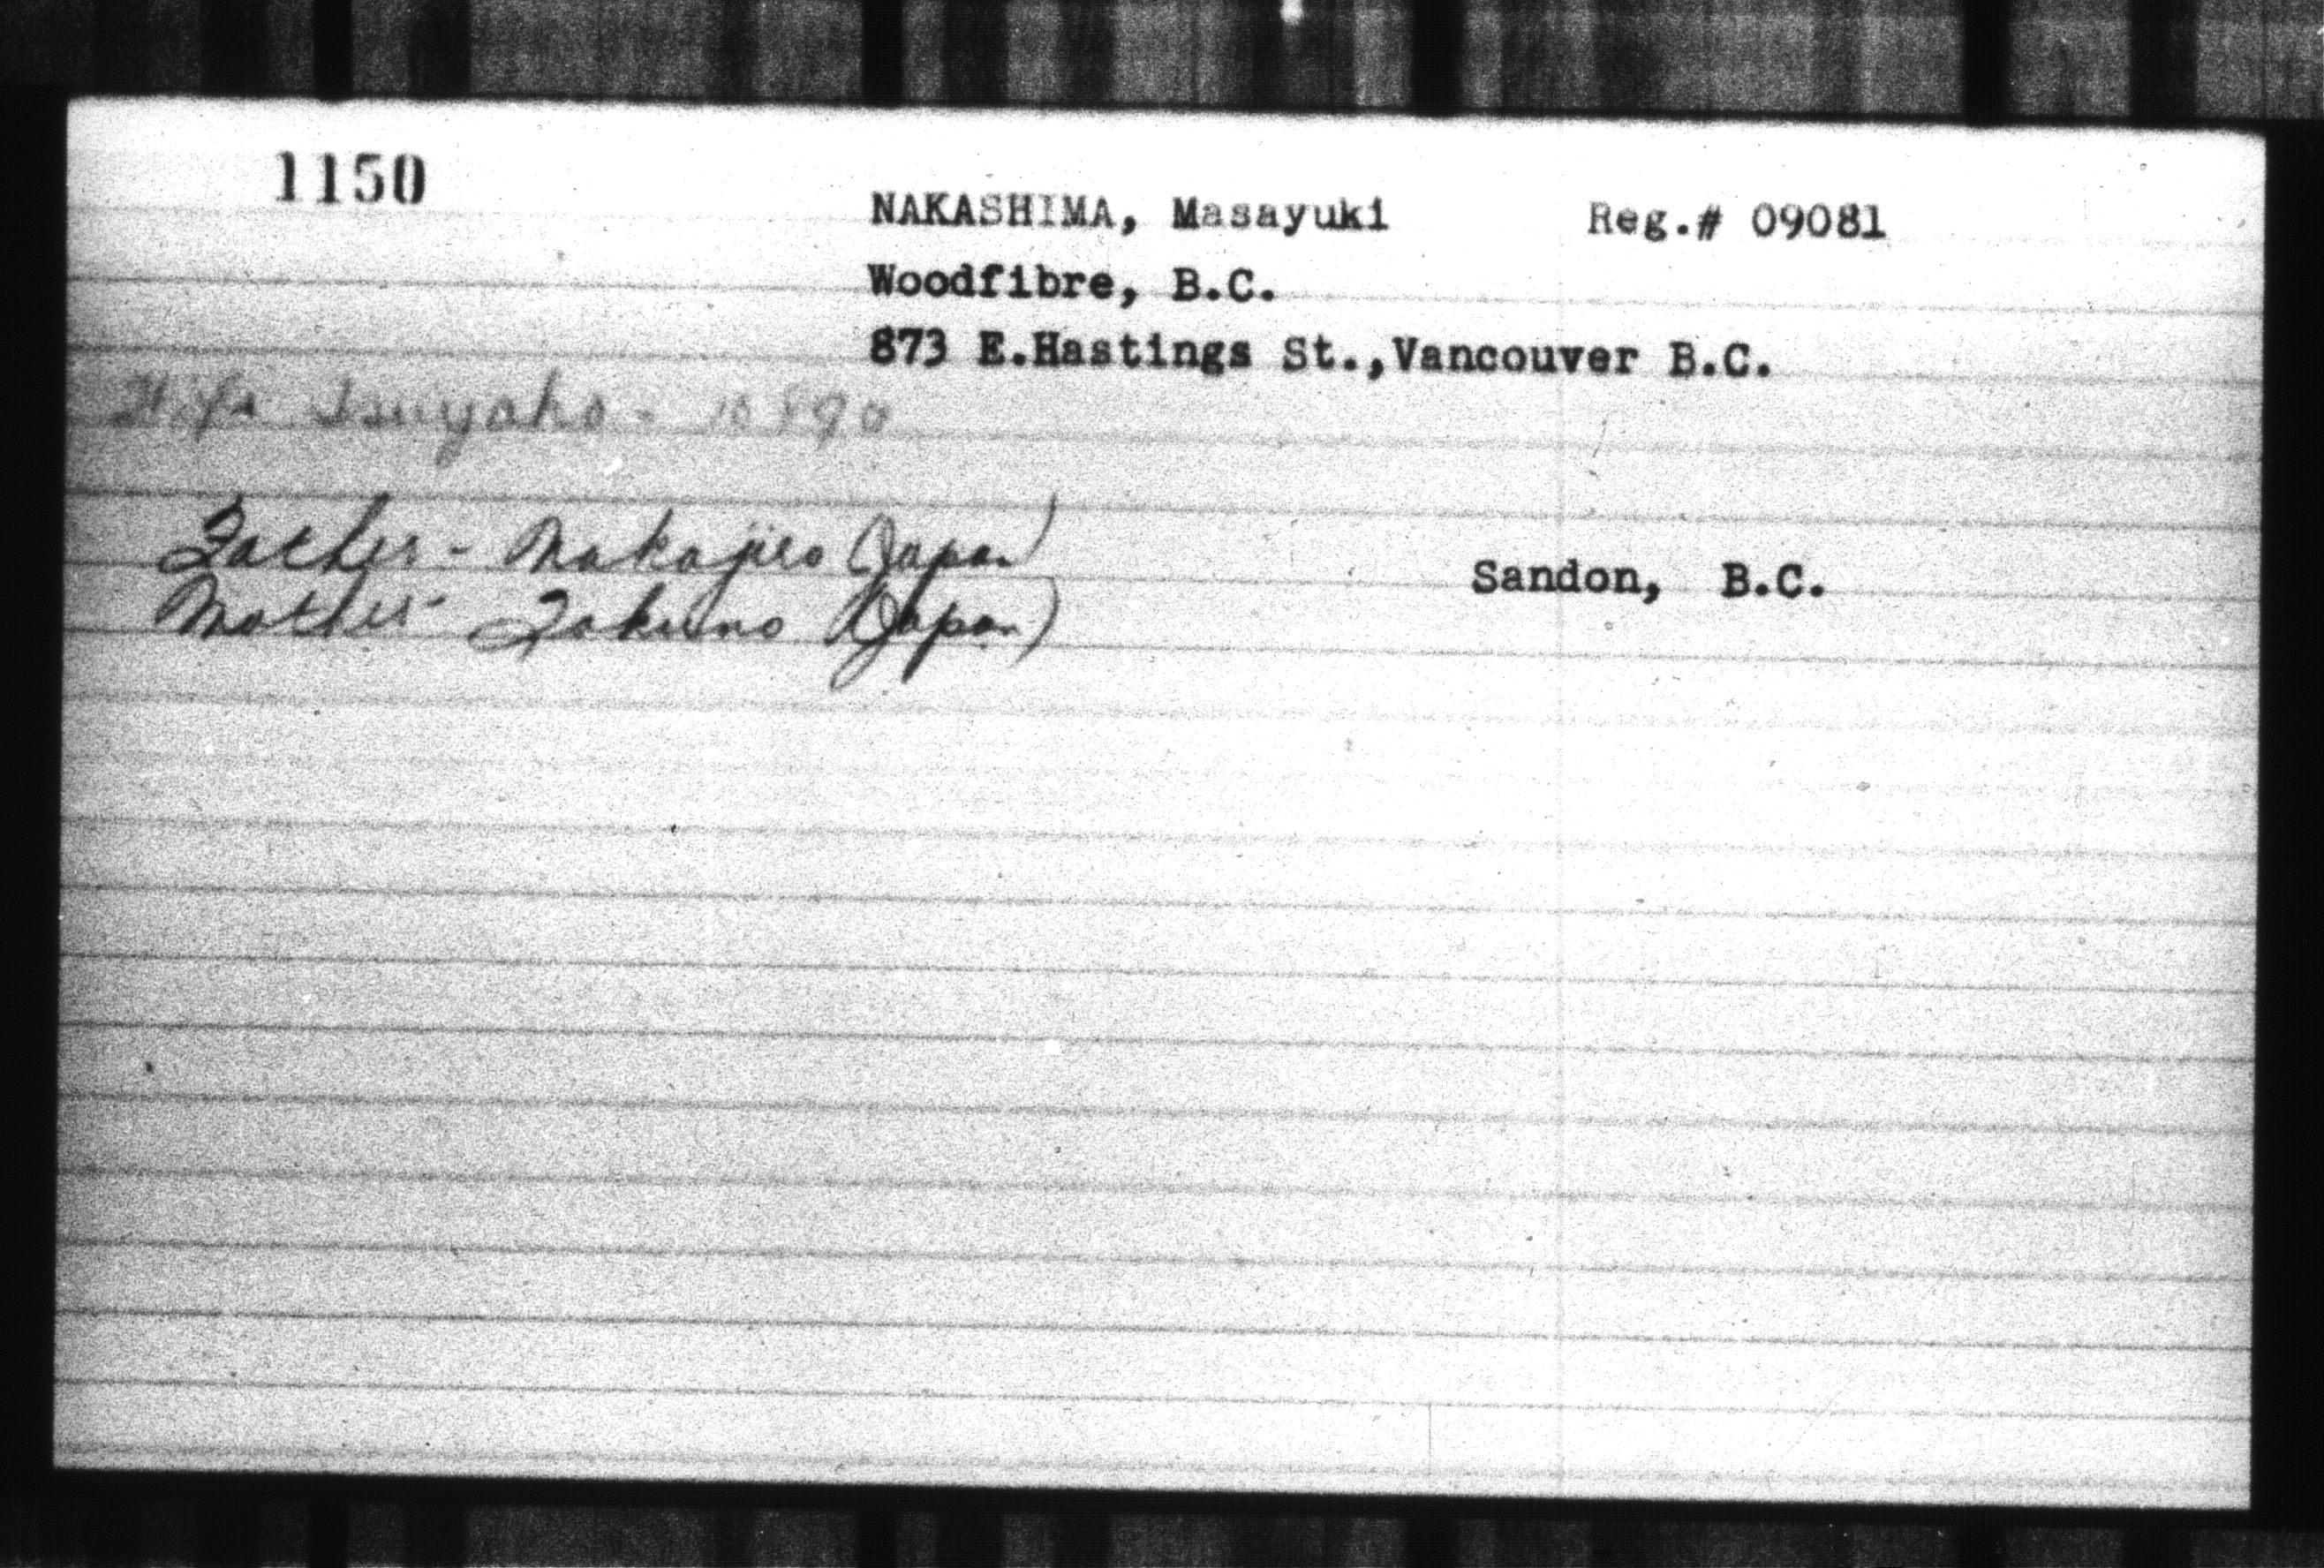 1150
NAKASHIMA, Masayuki Reg.# 09081
Woodfibre, B.C.
873 E.Hastings St.,Vancouver B.C.
Wife Tsuyako - 10890
Father - Nakajiro (Japan)
Sandon, B.C.
Mother - Fakuno (Japan)